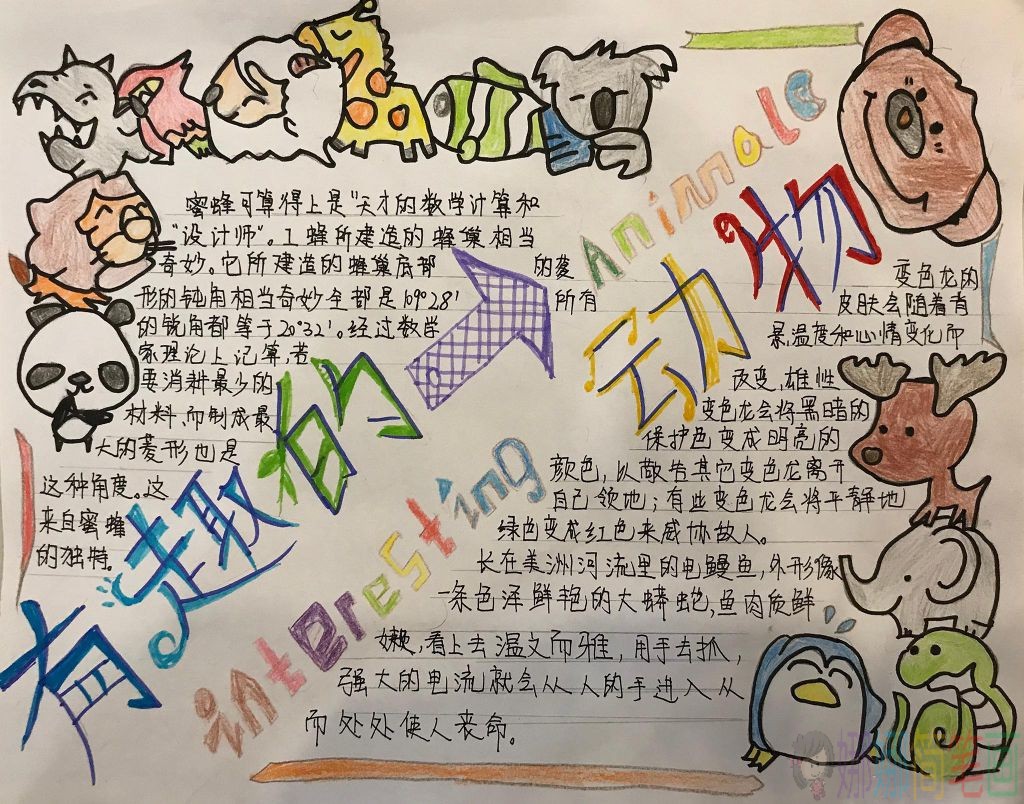 有趣的动物
interesting
Aninnale
蜜蜂可算得上是“天才的数学计算和
“设计师”。工蜂所建造的蜂巢相当
奇妙。它所建造的蜂巢底部的菱
形的钝角相当奇妙全都是109°28′所有
的锐角都等于20°32′。经过数学
家理论上记算,若
要消耗最少的
材料,而制成最
大的菱形也是
这种角度。这
来自蜜蜂
的独特。
变色龙的
皮肤会随着背
景,温度和心情变化而
改变,雄性
变色龙会将黑暗的
保护色变成明亮的
颜色,以敬告其它变色龙离开
自己领地;有些变色龙会将平静地
绿色变成红色来威协敌人。
长在美洲河流里的电鳗鱼,外形像
一条色泽鲜艳的大蟒蛇,鱼肉质鲜
嫩,看上去温文而雅,用手去抓,
强大的电流就会从人的手进入从
而处处使人丧命。